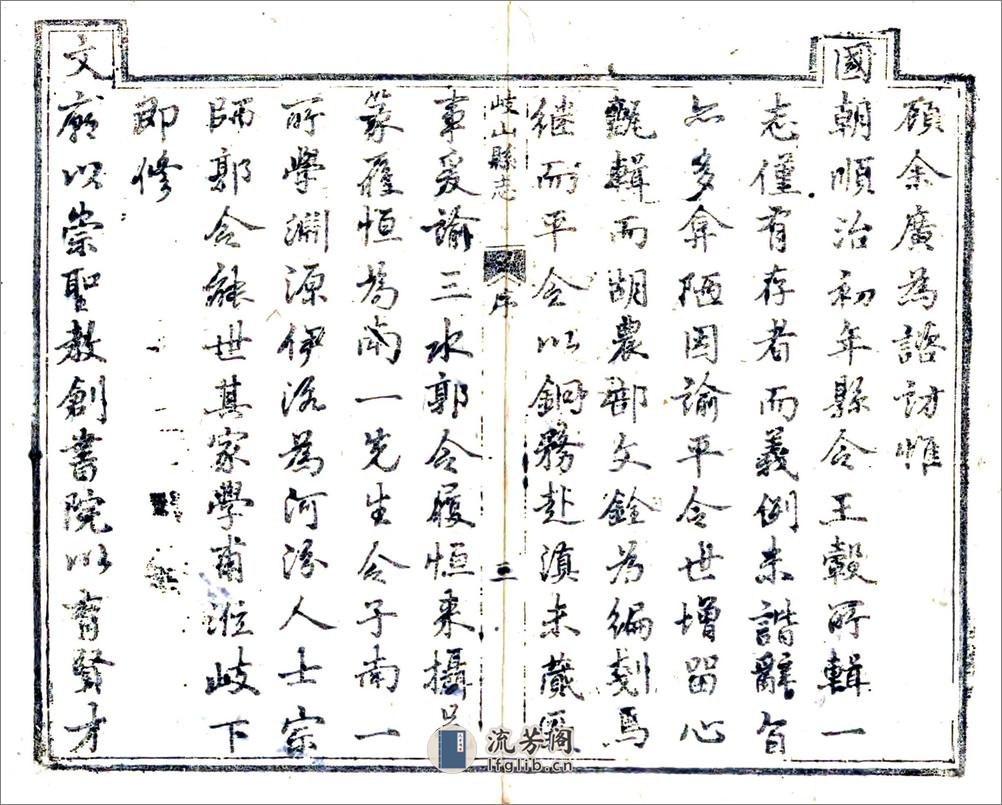 顧余廣為諮訪惟
國朝順治初年縣令王轂所輯一
志僅有存者而義例未諧辭旨
亦多弇陋因諭平令世增留心
甄輯而胡農部文銓為編刻焉
繼而平令以銅務赴滇未蕆厥
岐山縣志
序
三
事爰諭三水郭令履恒來攝是
篆履恒為南一先生令子南一
所學淵源伊洛為河汾人士宗
師郭令能世其家學甫涖岐下
即修
文廟以崇聖教創書院以育賢才
流芳閣
lfglib.cn